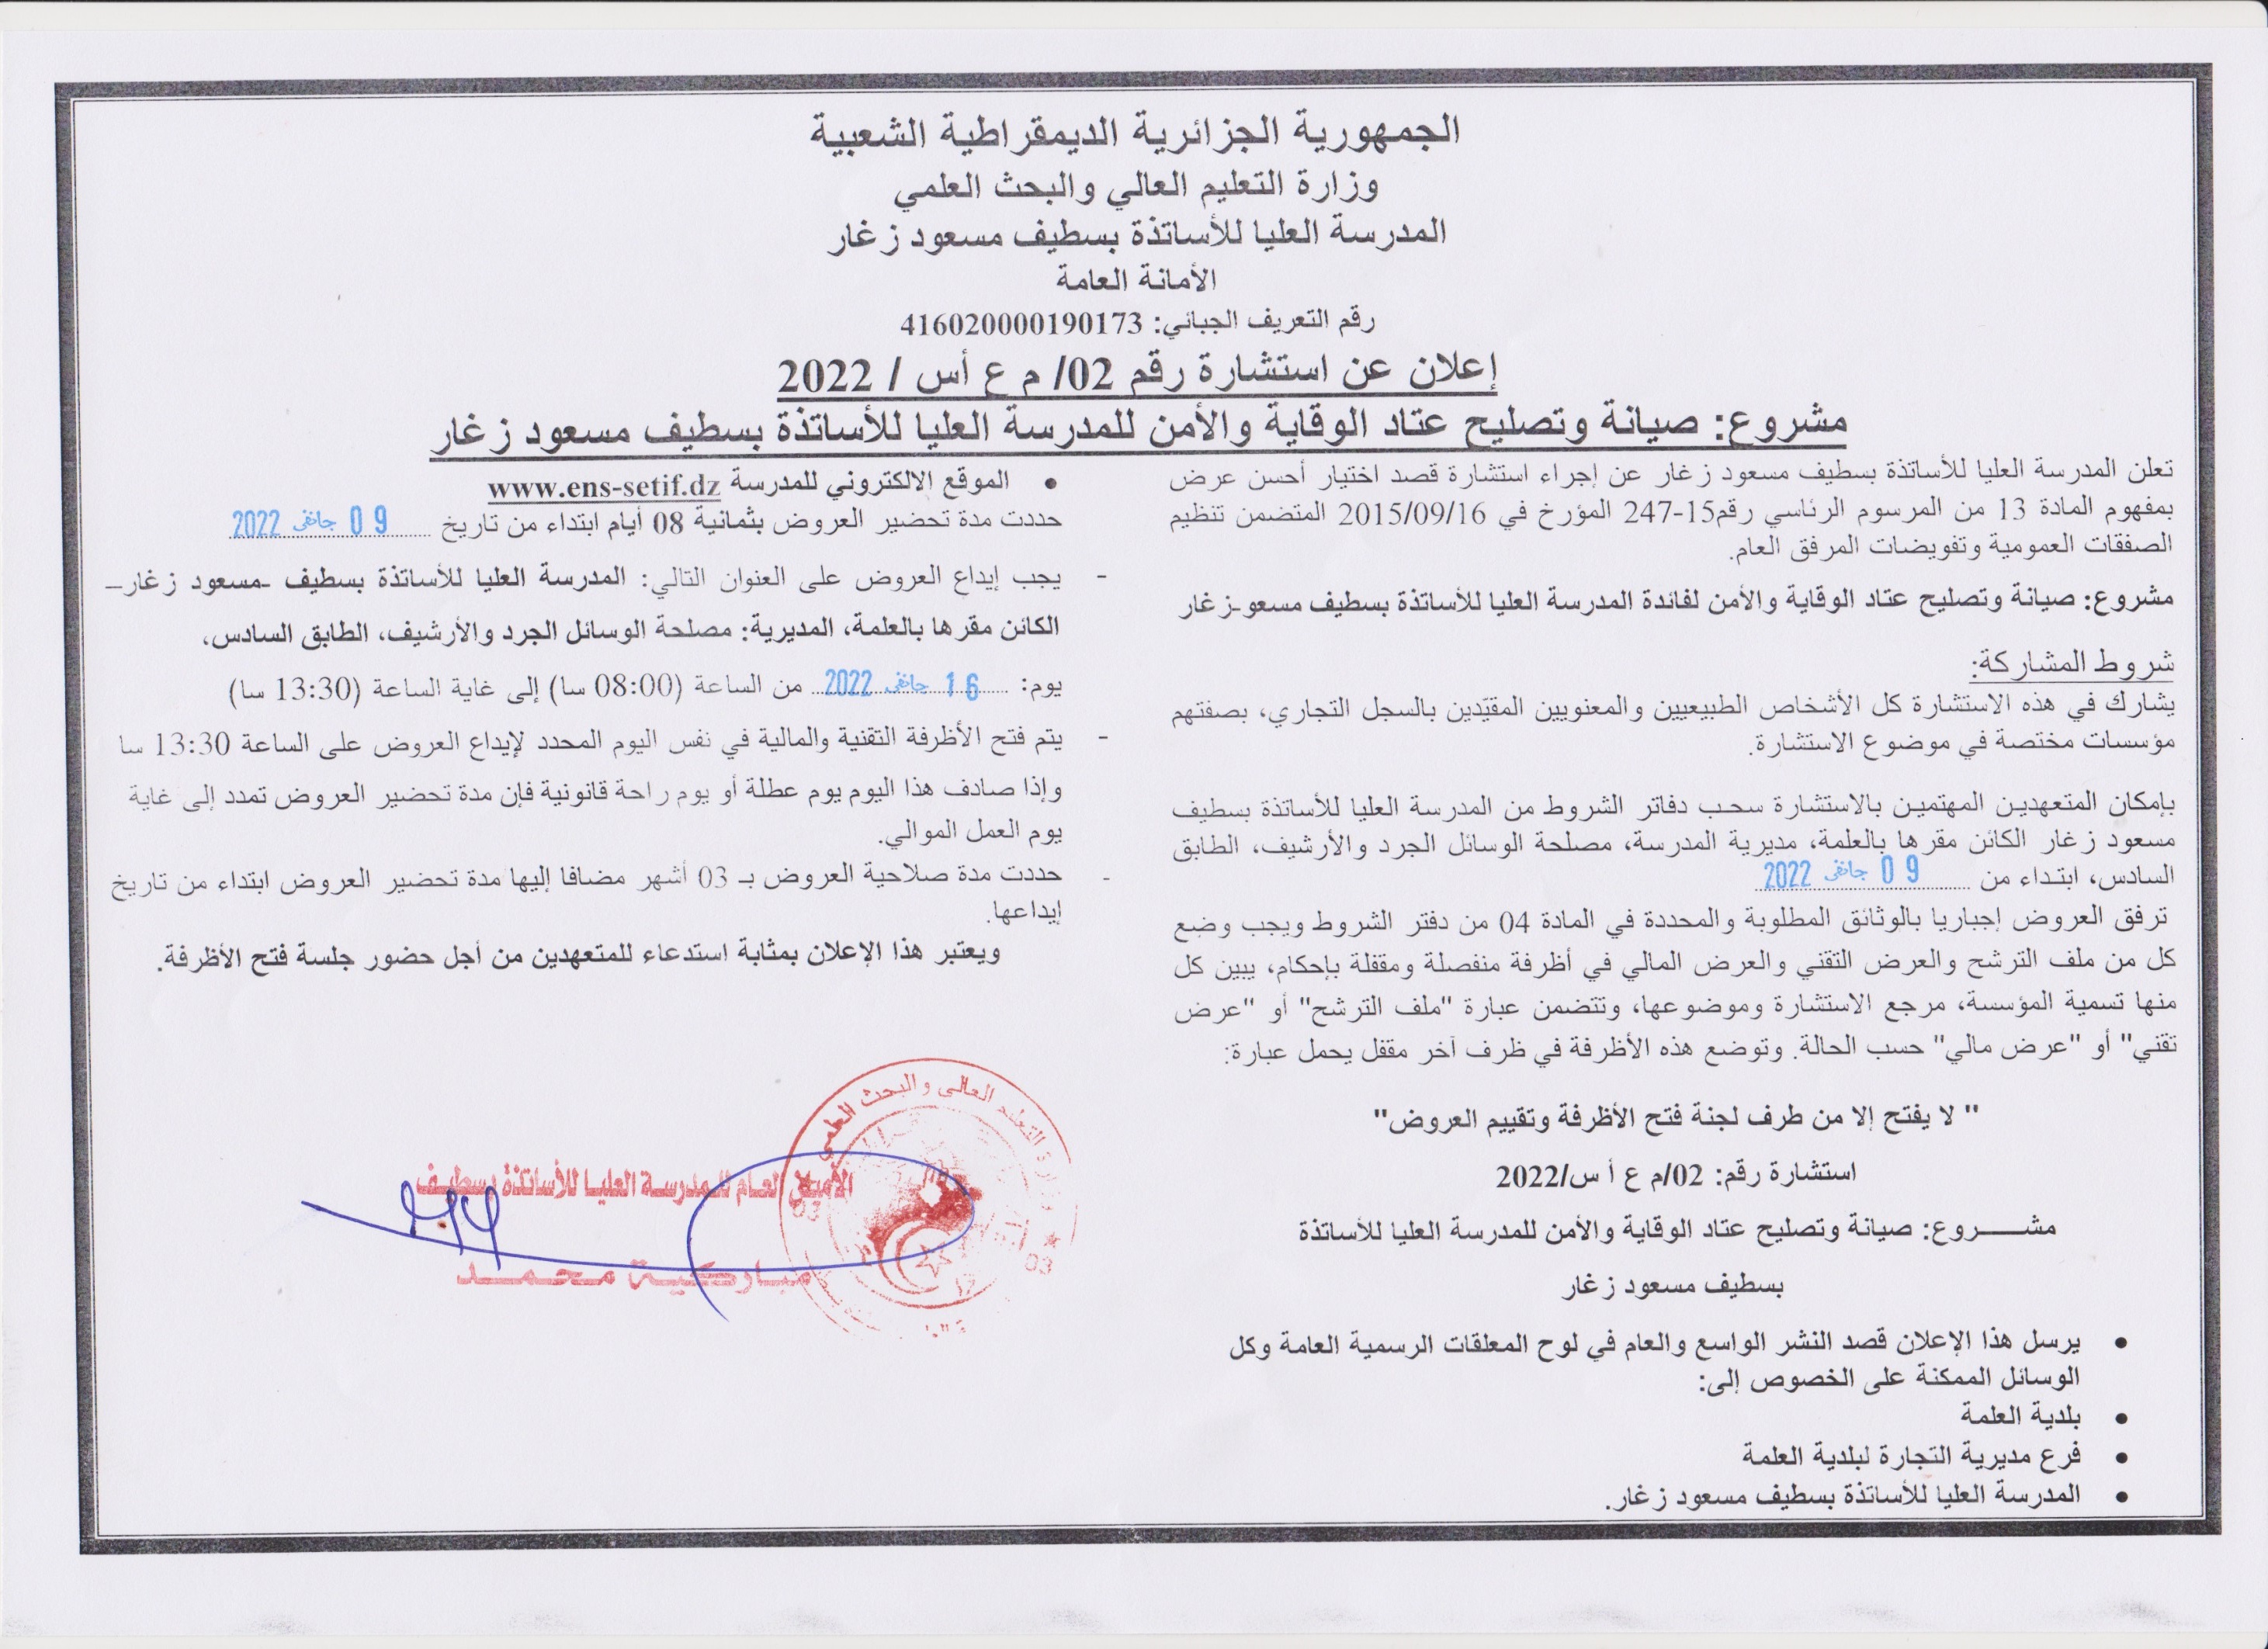 الجمهورية الجزائرية الديمقراطية الشعبية
وزارة التعليم العالي والبحث العلمي
المدرسة العليا للأساتذة بسطيف مسعود زغار
الأمانة العامة
رقم التعريف الجبائي: 416020000190173
إعلان عن استشارة رقم 02/ م ع أس / 2022
مشروع: صيانة وتصليح عتاد الوقاية والأمن للمدرسة العليا للأساتذة بسطيف مسعود زغار
تعلن المدرسة العليا للأساتذة بسطيف مسعود زغار عن إجراء استشارة قصد اختيار أحسن عرض
بمفهوم المادة 13 من المرسوم الرئاسي رقم15-247 المؤرخ في 2015/09/16 المتضمن تنظيم
الصفقات العمومية وتفويضات المرفق العام.
مشروع: صيانة وتصليح عتاد الوقاية والأمن لفائدة المدرسة العليا للأساتذة بسطيف مسعو-زغار
شروط المشاركة:
يشارك في هذه الاستشارة كل الأشخاص الطبيعيين والمعنويين المقيّدين بالسجل التجاري، بصفتهم
مؤسسات مختصة في موضوع الاستشارة.
بإمكان المتعهدين المهتمين بالاستشارة سحب دفاتر الشروط من المدرسة العليا للأساتذة بسطيف
مسعود زغار الكائن مقرها بالعلمة، مديرية المدرسة، مصلحة الوسائل الجرد والأرشيف، الطابق
السادس، ابتداء من 09 جانفي 2022
ترفق العروض إجباريا بالوثائق المطلوبة والمحددة في المادة 04 من دفتر الشروط ويجب وضع
كل من ملف الترشح والعرض التقني والعرض المالي في أظرفة منفصلة ومقفلة بإحكام، يبين كل
منها تسمية المؤسسة، مرجع الاستشارة وموضوعها، وتتضمن عبارة "ملف الترشح" أو "عرض
تقني" أو "عرض مالي" حسب الحالة. وتوضع هذه الأظرفة في ظرف آخر مقفل يحمل عبارة:
" لا يفتح إلا من طرف لجنة فتح الأظرفة وتقييم العروض"
استشارة رقم: 02/م ع أ س/2022
مشـــــروع: صيانة وتصليح عتاد الوقاية والأمن للمدرسة العليا للأساتذة
بسطيف مسعود زغار
• يرسل هذا الإعلان قصد النشر الواسع والعام في لوح المعلقات الرسمية العامة وكل
الوسائل الممكنة على الخصوص إلى:
• بلدية العلمة
• فرع مديرية التجارة لبلدية العلمة
• المدرسة العليا للأساتذة بسطيف مسعود زغار.
• الموقع الالكتروني للمدرسة www.ens-setif.dz
حددت مدة تحضير العروض بثمانية 08 أيام ابتداء من تاريخ 09 جانفي 2022
- يجب إيداع العروض على العنوان التالي: المدرسة العليا للأساتذة بسطيف -مسعود زغار–
الكائن مقرها بالعلمة، المديرية: مصلحة الوسائل الجرد والأرشيف، الطابق السادس،
يوم: 16 جانفي 2022 من الساعة (08:00 سا) إلى غاية الساعة (13:30 سا)
- يتم فتح الأظرفة التقنية والمالية في نفس اليوم المحدد لإيداع العروض على الساعة 13:30 سا
وإذا صادف هذا اليوم يوم عطلة أو يوم راحة قانونية فإن مدة تحضير العروض تمدد إلى غاية
يوم العمل الموالي.
- حددت مدة صلاحية العروض بـ 03 أشهر مضافا إليها مدة تحضير العروض ابتداء من تاريخ
إيداعها.
ويعتبر هذا الإعلان بمثابة استدعاء للمتعهدين من أجل حضور جلسة فتح الأظرفة.
وزارة التعليم العالي والبحث العلمي
الأمين العام للمدرسة العليا للأساتذة بسطيف
مباركية محمد
03